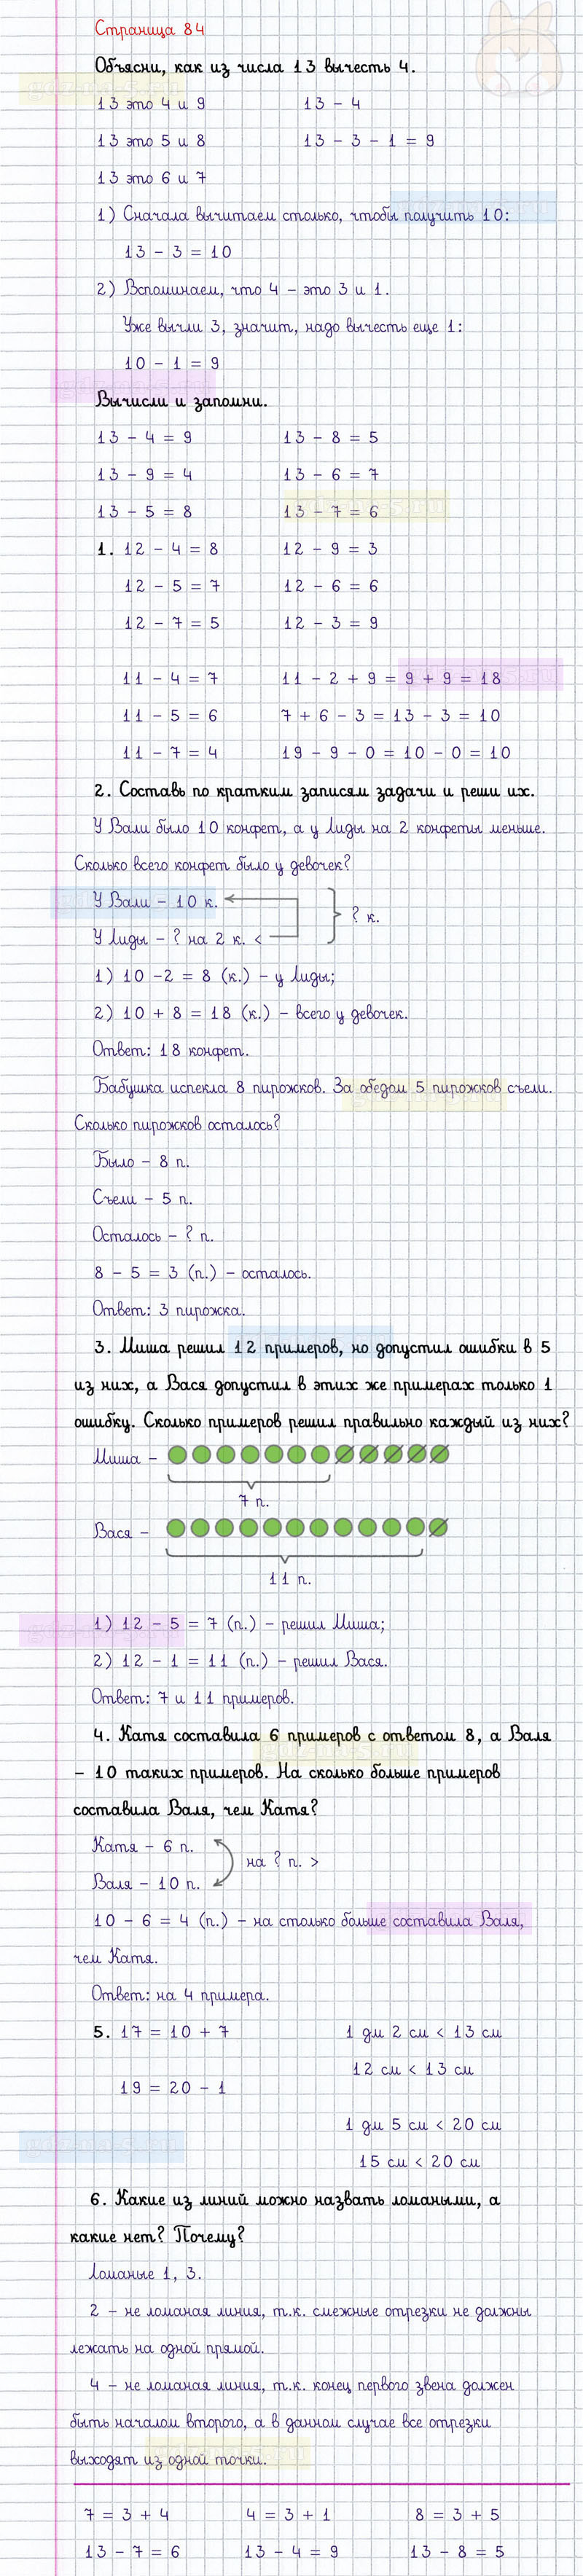 Страница 84
Объясни, как из числа 13 вычесть 4.
13 это 4 и 9 13 - 4
13 это 5 и 8 13 - 3 - 1 = 9
13 это 6 и 7
1) Сначала вычитаем столько, чтобы получить 10:
13 - 3 = 10
2) Вспоминаем, что 4 - это 3 и 1.
Уже вычли 3, значит, надо вычесть еще 1:
10 - 1 = 9
Вычисли и запомни.
13 - 4 = 9 13 - 8 = 5
13 - 9 = 4 13 - 6 = 7
13 - 5 = 8 13 - 7 = 6
1. 12 - 4 = 8 12 - 9 = 3
12 - 5 = 7 12 - 6 = 6
12 - 7 = 5 12 - 3 = 9
11 - 4 = 7 11 - 2 + 9 = 9 + 9 = 18
11 - 5 = 6 7 + 6 - 3 = 13 - 3 = 10
11 - 7 = 4 19 - 9 - 0 = 10 - 0 = 10
2. Составь по кратким записям задачи и реши их.
У Вали было 10 конфет, а у Лиды на 2 конфеты меньше.
Сколько всего конфет было у девочек?
У Вали - 10 к.
? к.
У Лиды - ? на 2 к. <
1) 10 -2 = 8 (к.) - у Лиды;
2) 10 + 8 = 18 (к.) - всего у девочек.
Ответ: 18 конфет.
Бабушка испекла 8 пирожков. За обедом 5 пирожков съели.
Сколько пирожков осталось?
Было - 8 п.
Съели - 5 п.
Осталось - ? п.
8 - 5 = 3 (п.) - осталось.
Ответ: 3 пирожка.
3. Миша решил 12 примеров, но допустил ошибки в 5
из них, а Вася допустил в этих же примерах только 1
ошибку. Сколько примеров решил правильно каждый из них?
Миша -
7 п.
Вася -
11 п.
1) 12 - 5 = 7 (п.) - решил Миша;
2) 12 - 1 = 11 (п.) - решил Вася.
Ответ: 7 и 11 примеров.
4. Катя составила 6 примеров с ответом 8, а Валя
- 10 таких примеров. На сколько больше примеров
составила Валя, чем Катя?
Катя - 6 п.
на ? п. >
Валя - 10 п.
10 - 6 = 4 (п.) - на столько больше составила Валя,
чем Катя.
Ответ: на 4 примера.
5. 17 = 10 + 7 1 дм 2 см < 13 см
12 см < 13 см
19 = 20 - 1
1 дм 5 см < 20 см
15 см < 20 см
6. Какие из линий можно назвать ломаными, а
какие нет? Почему?
Ломаные 1, 3.
2 - не ломаная линия, т.к. смежные отрезки не должны
лежать на одной прямой.
4 - не ломаная линия, т.к. конец первого звена должен
быть началом второго, а в данном случае все отрезки
выходят из одной точки.
7 = 3 + 4 4 = 3 + 1 8 = 3 + 5
13 - 7 = 6 13 - 4 = 9 13 - 8 = 5